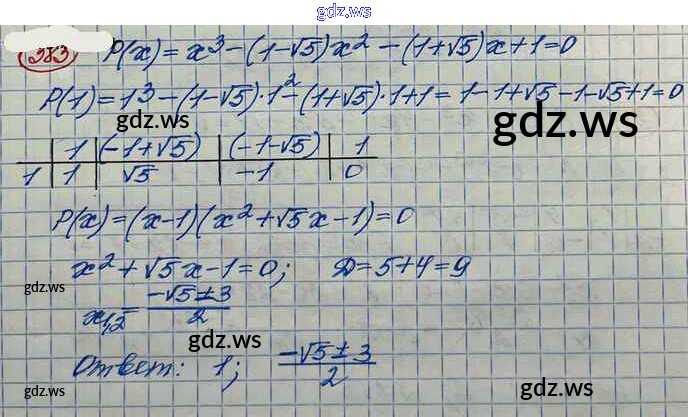 gdz.ws
383 P(x) = x³ - (1-√5)x² - (1+√5)x + 1 = 0
P(1) = 1³ - (1-√5)·1² - (1+√5)·1 + 1 = 1 - 1 + √5 - 1 - √5 + 1 = 0
gdz.ws gdz.ws
1 (-1+√5) (-1-√5) 1
1 1 √5 -1 0
P(x) = (x-1)(x² + √5x - 1) = 0
x² + √5x - 1 = 0; D = 5 + 4 = 9
gdz.ws gdz.ws
x₁,₂ = (-√5 ± 3)/2
gdz.ws
Ответ: 1; (-√5 ± 3)/2
gdz.ws gdz.ws